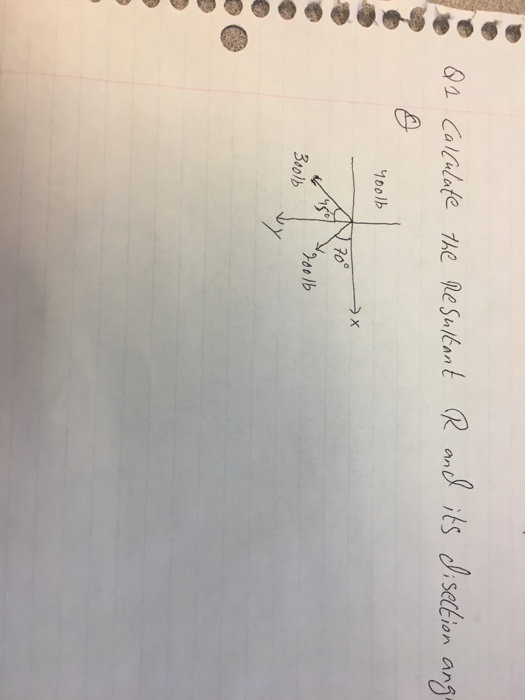 Q1 Calculate the Resultant R and its disection ang
400lb
70°
x
45°
200lb
300lb
Y